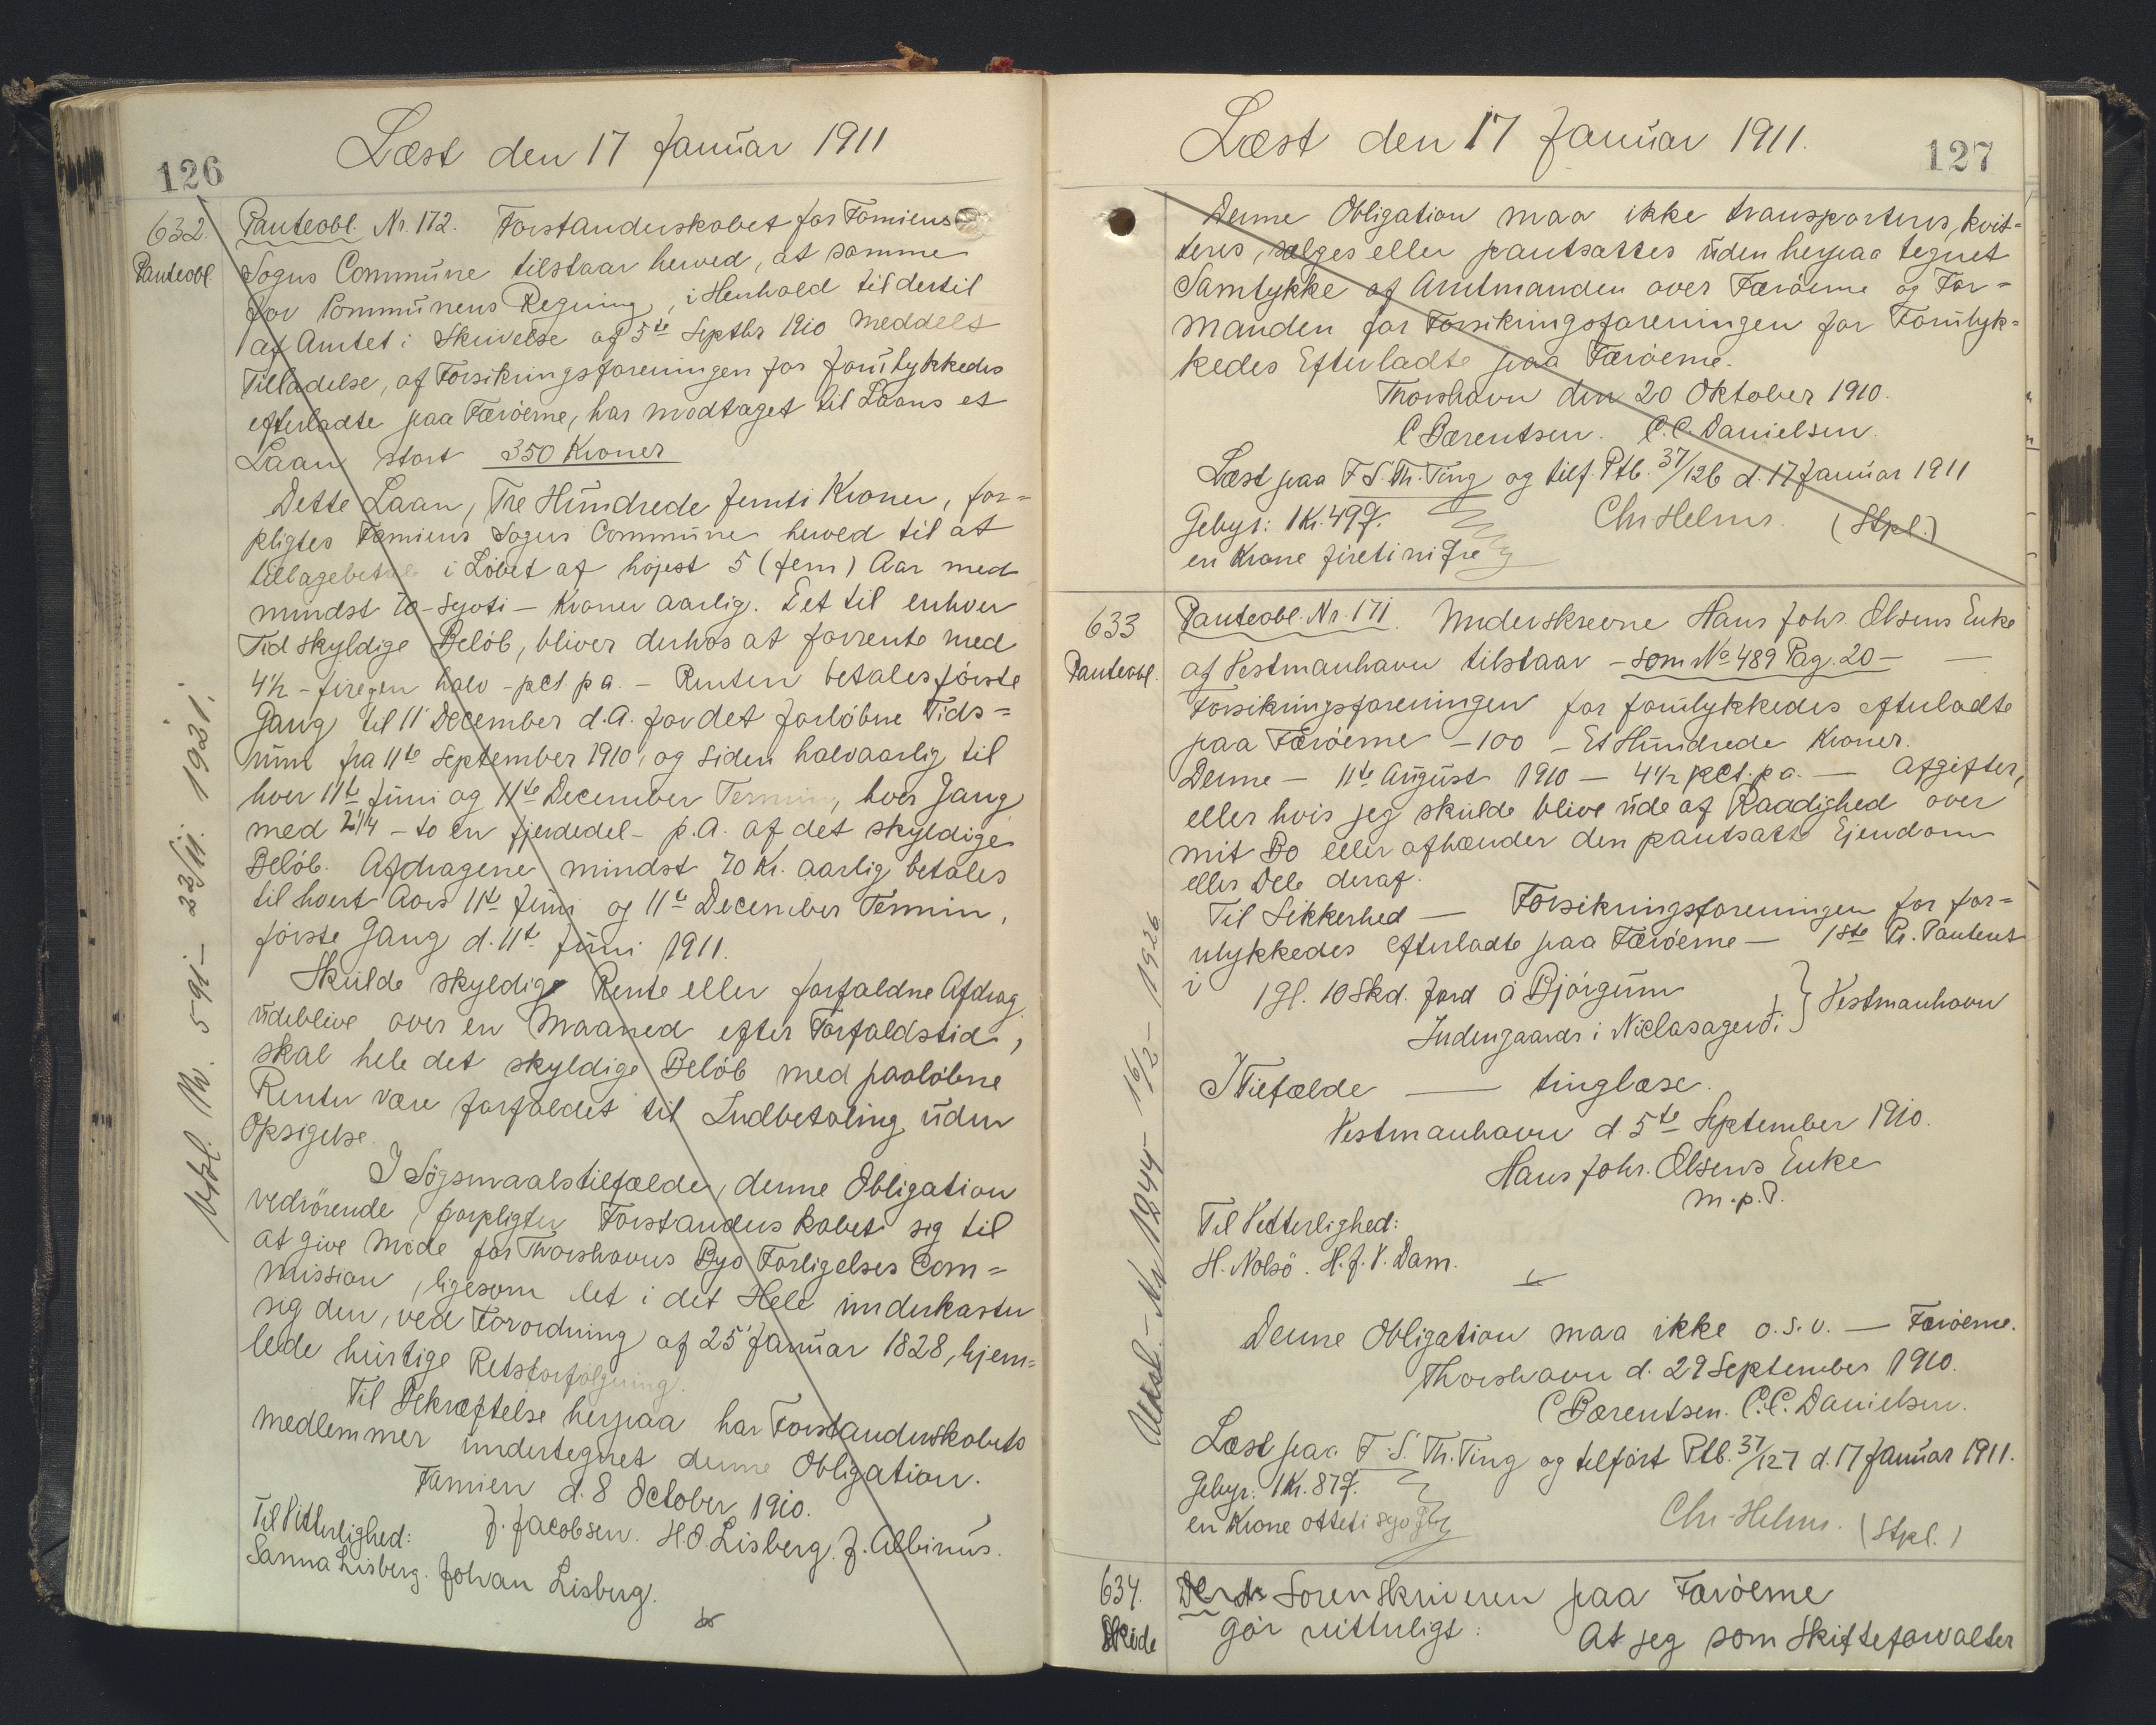 126
Læst den 17 Januar 1911
632.
Panteobl
Panteobl. Nr. 172. Forstanderskabet for Famiens
Sogns Commune tilstaar herved, at samme
for Communens Regning, i Henhold til dertil
af Amtet i Skrivelse af 5te Septbr 1910 meddelt
Tilladelse, af Forsikringsforeningen for forulykkedes
efterladte paa Færöerne, har modtaget til Laans et
Laan stort 350 Kroner
Dette Laan, Tre Hundrede femti Kroner, for=
pligtes Famiens Sogns Commune herved til at
tilbagebetale i Löbet af höjest 5 (fem) Aar med
mindst 70 - syoti - Kroner aarlig. Det til enhver
Tid skyldige Belöb, bliver derhos at forrente med
4½ - firegen halv - pct p a. - Renten betales förste
Gang til 11' December d.A. for det forlöbne Tids=
rum fra 11te September 1910, og siden halvaarlig til
hver 11te Juni og 11te December Termin, hver Gang
med 2¼ - to en fjerdedel - p.A. af det skyldige
Belöb. Afdragene mindst 70 Kr. aarlig betales
til hvert Aars 11te Juni og 11te December Termin,
förste Gang d. 11te Juni 1911.
Skulde skyldige Rente eller forfaldne Afdrag
udeblive over en Maaned efter Forfaldstid,
skal hele det skyldige Belöb med paalöbne
Renter være forfaldet til Indbetaling uden
Opsigelse.
I Sögsmaalstilfælde, denne Obligation
vedrörende, forpligter Forstanderskabet sig til
at give Möde for Thorshavns Byo Forligelses Com=
mission, ligesom det i det Hele underkaster
sig den, ved Forordning af 25' Januar 1828, hjem=
lede hurtige Retsforfölgning.
Til Bekræftelse herpaa har Forstanderskabets
medlemmer undertegnet denne Obligation.
Famien d. 8 October 1910.
Til Vitterlighed: J. Jacobsen. H.O. Lisberg. J. Albinus.
Sanna Lisberg. Johan Lisberg.
Nr. 591 - 22/11. 1921.
127
Læst den 17 Januar 1911.
Denne Obligation maa ikke transporteres, kvit=
teres, sælges eller pantsættes uden herpaa tegnet
Samtykke af Amtmanden over Færöerne og For=
manden for Forsikringsforeningen for Forulyk=
kedes Efterladte paa Færöerne.
Thorshavn den 20 Oktober 1910.
C Bærentsen. C.C. Danielsen.
Læst paa F S. Th. Ting og tilf. Ptb. 37/126 d. 17 Januar 1911
Gebyr: 1 Kr. 49 Ø. Chr Helms. (Stpl.)
en Krone fireti ni Øre
633
Panteobl.
Panteobl. Nr. 171. Underskrevne Hans Johs. Olsens Enke
af Vestmanhavn tilstaar - som No 489 Pag. 20 -
Forsikringsforeningen for forulykkedes efterladte
paa Færöerne - 100 - Et Hundrede Kroner.
Denne - 11te August 1910 - 4½ pct. p a. - Afgifter,
eller hvis jeg skulde blive ude af Raadighed over
mit Bo eller afhænder den pantsatte Ejendom
eller Dele deraf.
Til Sikkerhed - Forsikringsforeningen for for=
ulykkedes efterladte paa Færöerne - 1ste Pr. Panteret
i 1 Gl. 10 Skd. Jord á Bjórgum
Indengaards i Niclasagerdi } Vestmanhavn
I Tilfælde - tinglæse.
Vestmanhavn d. 5te September 1910.
Hans Johs. Olsens Enke
m. p. P.
Til Vitterlighed:
H. Nolsö. H. J. V. Dam.
Denne Obligation maa ikke o.s.v. - Færöerne.
Thorshavn d. 29 September 1910.
C Bærentsen. C.C. Danielsen.
Læst paa F. S. Th. Ting og tilfört Ptb. 37/127 d. 17 Januar 1911.
Gebyr: 1 Kr. 87 Ø.
en Krone otteti syo Øre Chr. Helms. (Stpl.)
Nr 1244 - 16/2 - 1926
634.
Skøde
Sorenskriveren paa Færöerne
Gör vitterligt: At jeg som Skifteforvalter